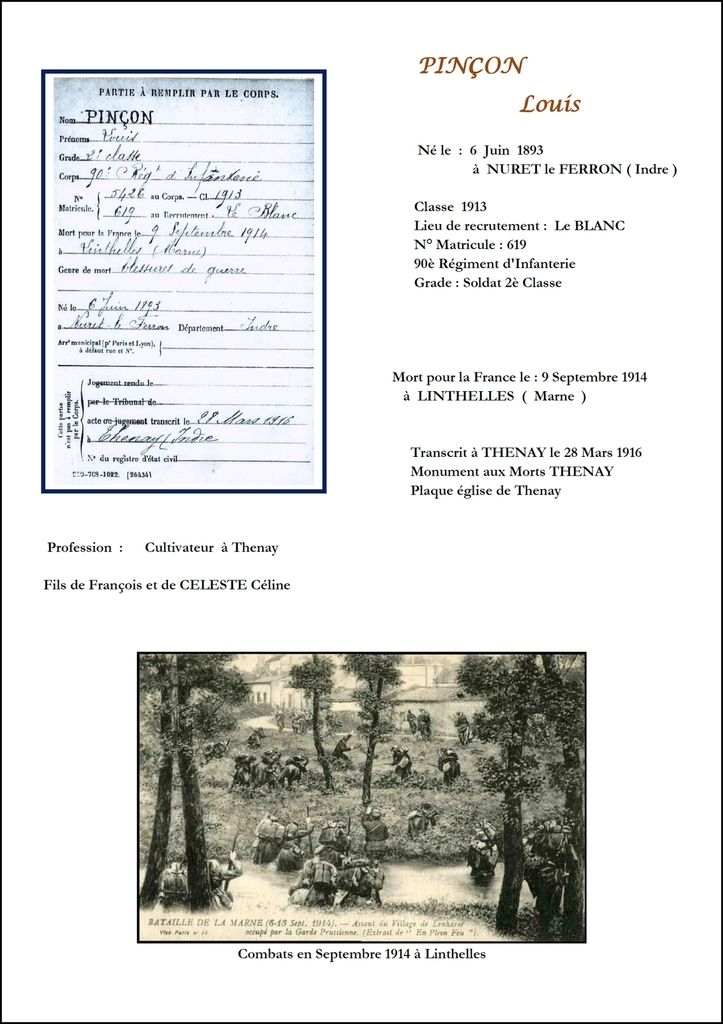 PINÇON
Louis
PARTIE À REMPLIR PAR LE CORPS.
Nom PINÇON
Prénoms Louis
Grade 2e classe
Corps 90e Régt d'Infanterie
N° 5426 au Corps. — Cl. 1913
Matricule. 619 au Recrutement. Le Blanc
Mort pour la France le 9 Septembre 1914
à Linthelles (Marne)
Genre de mort blessures de guerre
Né le 6 Juin 1893
à Nuret-le-Ferron Département Indre
Arrt municipal (pr Paris et Lyon),
à défaut rue et N°.
Cette partie
n'est pas à remplir
par le Corps.
Jugement rendu le
par le Tribunal de
acte ou jugement transcrit le 28 Mars 1916
à Thenay (Indre
N° du registre d'état civil
-708-1922. [26434]
Né le : 6 Juin 1893
à NURET le FERRON ( Indre )
Classe 1913
Lieu de recrutement : Le BLANC
N° Matricule : 619
90è Régiment d'Infanterie
Grade : Soldat 2è Classe
Mort pour la France le : 9 Septembre 1914
à LINTHELLES ( Marne )
Transcrit à THENAY le 28 Mars 1916
Monument aux Morts THENAY
Plaque église de Thenay
Profession : Cultivateur à Thenay
Fils de François et de CELESTE Céline
BATAILLE DE LA MARNE (6-13 Sept. 1914). — Assaut du Village de Lenharée
Visa Paris n° 14. occupé par la Garde Prussienne. (Extrait de " En Plein Feu ").
Combats en Septembre 1914 à Linthelles